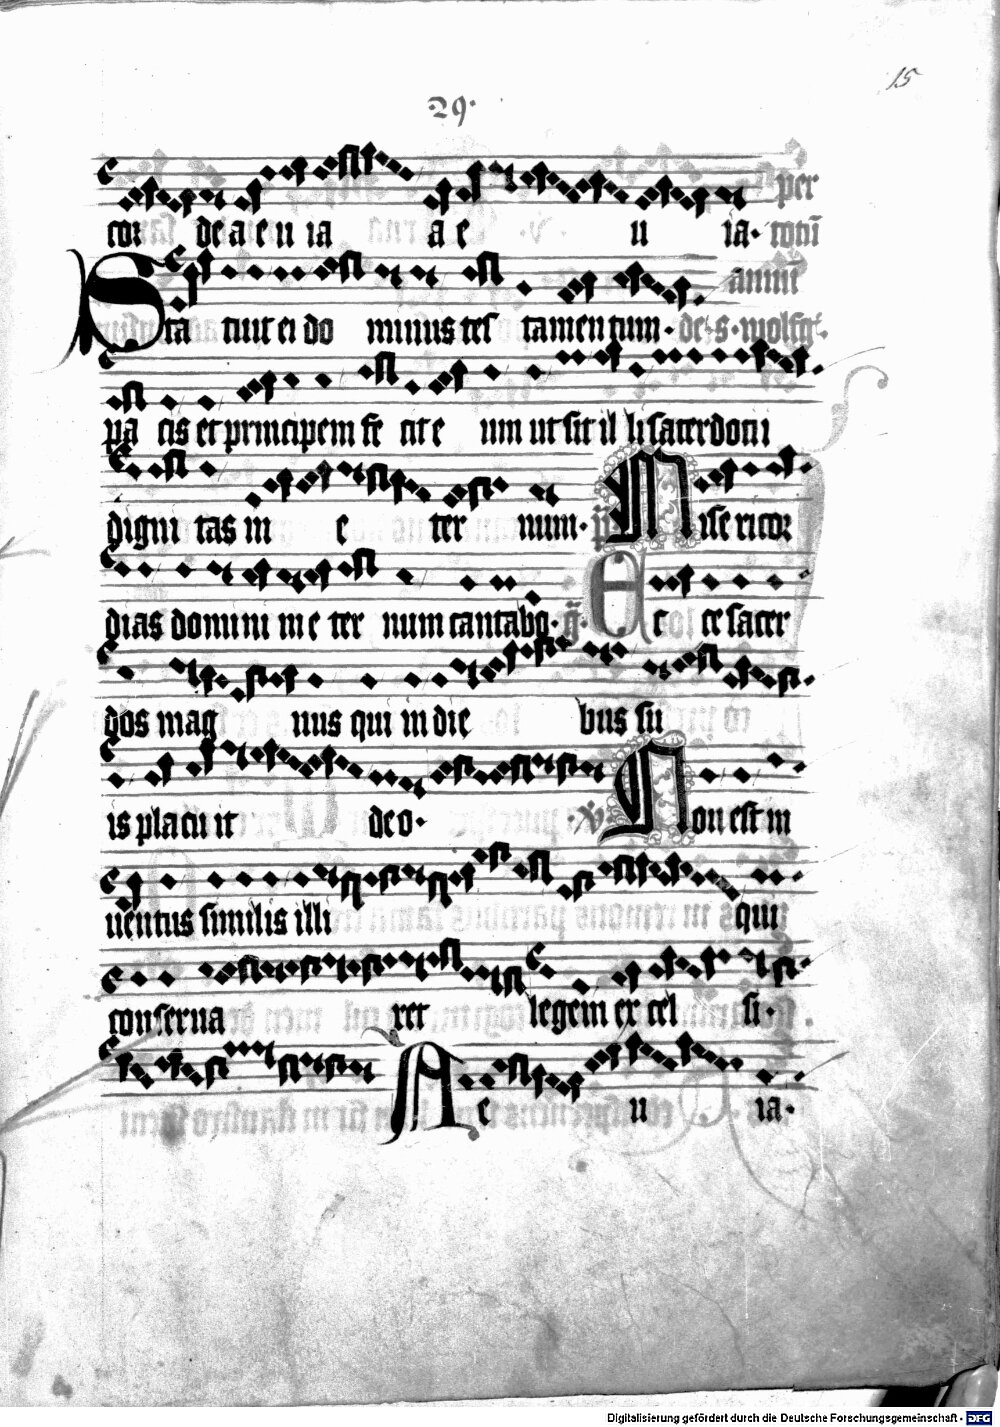 15
29.
per
cor de a e u ia a e u ia. totũ
annũ
Sta tuit ei do minus tes tamentum. de. s. wolfg.
pa cis et principem fe cit e um ut sit il li sacerdocii
digni tas in e ter num. Miſe ricor
dias domini in e ter num cantabo. g. Ec ce sacer
dos mag nus qui in die bus su
is placu it de o. v Non est in
uentus similis illi qui
conserua ret legem ex cel si.
A e u ia.
Digitalisierung gefördert durch die Deutsche Forschungsgemeinschaft - DFG